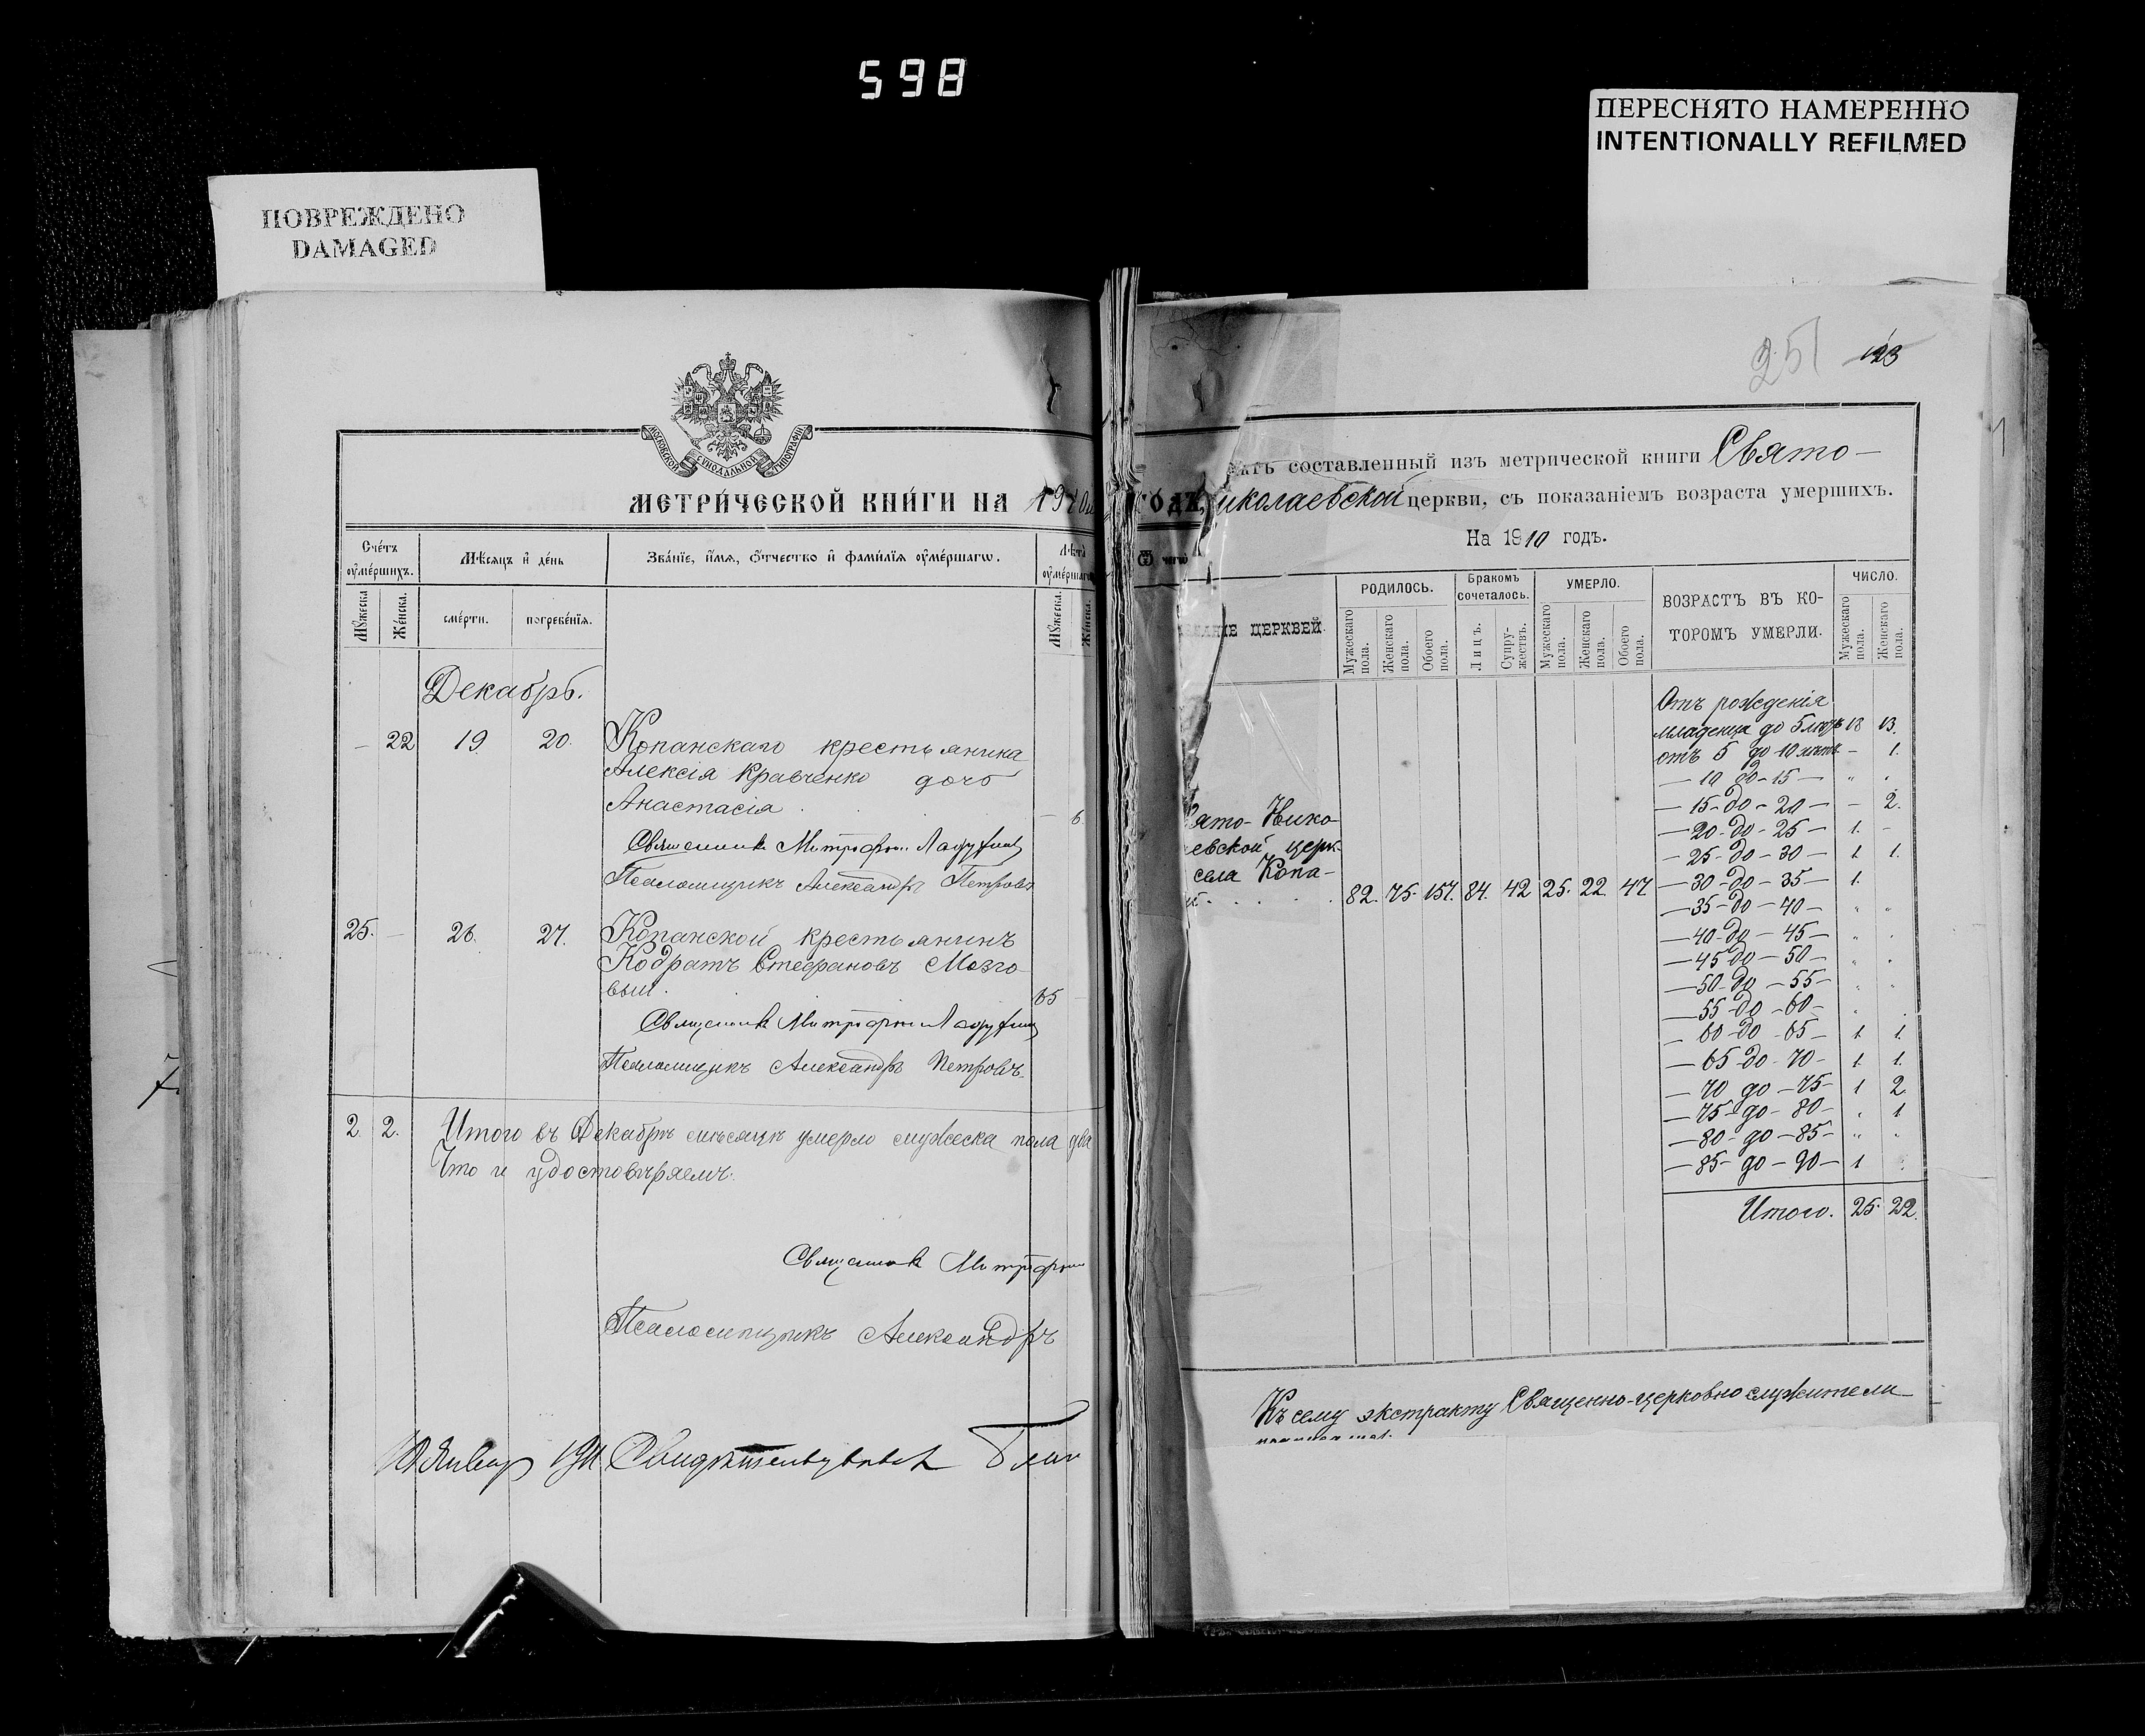 598
ПЕРЕСНЯТО НАМЕРЕННО
INTENTIONALLY REFILMED
ПОВРЕЖДЕНО
DAMAGED
МОСКОВСКОЙ СѴНОДАЛЬНОЙ ТИПОГРАФІИ
МЕТРИ́ЧЕСКОЙ КНИ́ГИ НА 1910 ГОДЪ,
Сче́тъ ᲂу҆ме́ршихъ.
Мѣ́сяцъ и҆ де́нь
Зва́нїе, и҆́мѧ, ѻ҆́тчество и҆ фами́лїѧ ᲂу҆ме́ршагѡ.
Лѣ́тъ ᲂу҆ме́ршагѡ
Ѿ чегѡ̀
Мꙋ́жеска
Же́нска.
сме́рти.
погребе́нїѧ.
Мꙋ́жеска.
Же́нска.
Декабрь.
— 22 19. 20. Копанскаго крестьянина
Алексія Кравченко дочь
Анастасія. — 6
Священникъ Митрофанъ
Псаломщикъ Александръ Петровъ
25. — 26. 27. Копанской крестьянинъ
Кодратъ Стефановъ Мозго-
вый. 65 -
Священникъ Митрофанъ
Псаломщикъ Александръ Петровъ.
2 2. Итого въ Декабрѣ мѣсяцѣ умерло мужеска пола два
Что и удостовѣряемъ.
Священникъ Митрофанъ
Псаломщикъ Александръ
1911
251 123
составленный изъ метрической книги Свято-
иколаевской церкви, съ показаніемъ возраста умершихъ.
На 1910 годъ.
ЦЕРКВЕЙ.
РОДИЛОСЬ.
Мужескаго пола.
Женскаго пола.
Обоего пола.
Бракомъ сочеталось.
Лицъ.
Супружествъ.
УМЕРЛО.
Мужескаго пола.
Женскаго пола.
Обоего пола.
ВОЗРАСТЪ ВЪ КО-
ТОРОМЪ УМЕРЛИ.
ЧИСЛО.
Мужескаго пола.
Женскаго пола.
ято-Нико-
евской церк-
села Копа-
82. 75. 157. 84. 42 25. 22. 47
Отъ рожденія
младенца до 5 лѣтъ 18 13.
отъ 5 до 10 лѣтъ — 1.
— 10 до — 15 — " "
— 15 - до - 20 — - 2.
— 20 - до - 25 — 1. -
— 25 - до - 30 — 1 1.
— 30 - до - 35 — 1.
— 35 - до - 40 — " "
— 40 - до - 45 — " "
— 45 до - 50 — " "
— 50 - до - 55 — " "
— 55 до - 60 — " .
— 60 - до - 65 — 1 1.
— 65 - до - 70 — 1. 1.
— 70 до - 75 — 1 2
— 75 - до - 80 — . 1
— 80 - до - 85 — " "
— 85 - до - 90 — 1 .
Итого. 25. 22.
Къ сему экстракту Священно-церковно служители